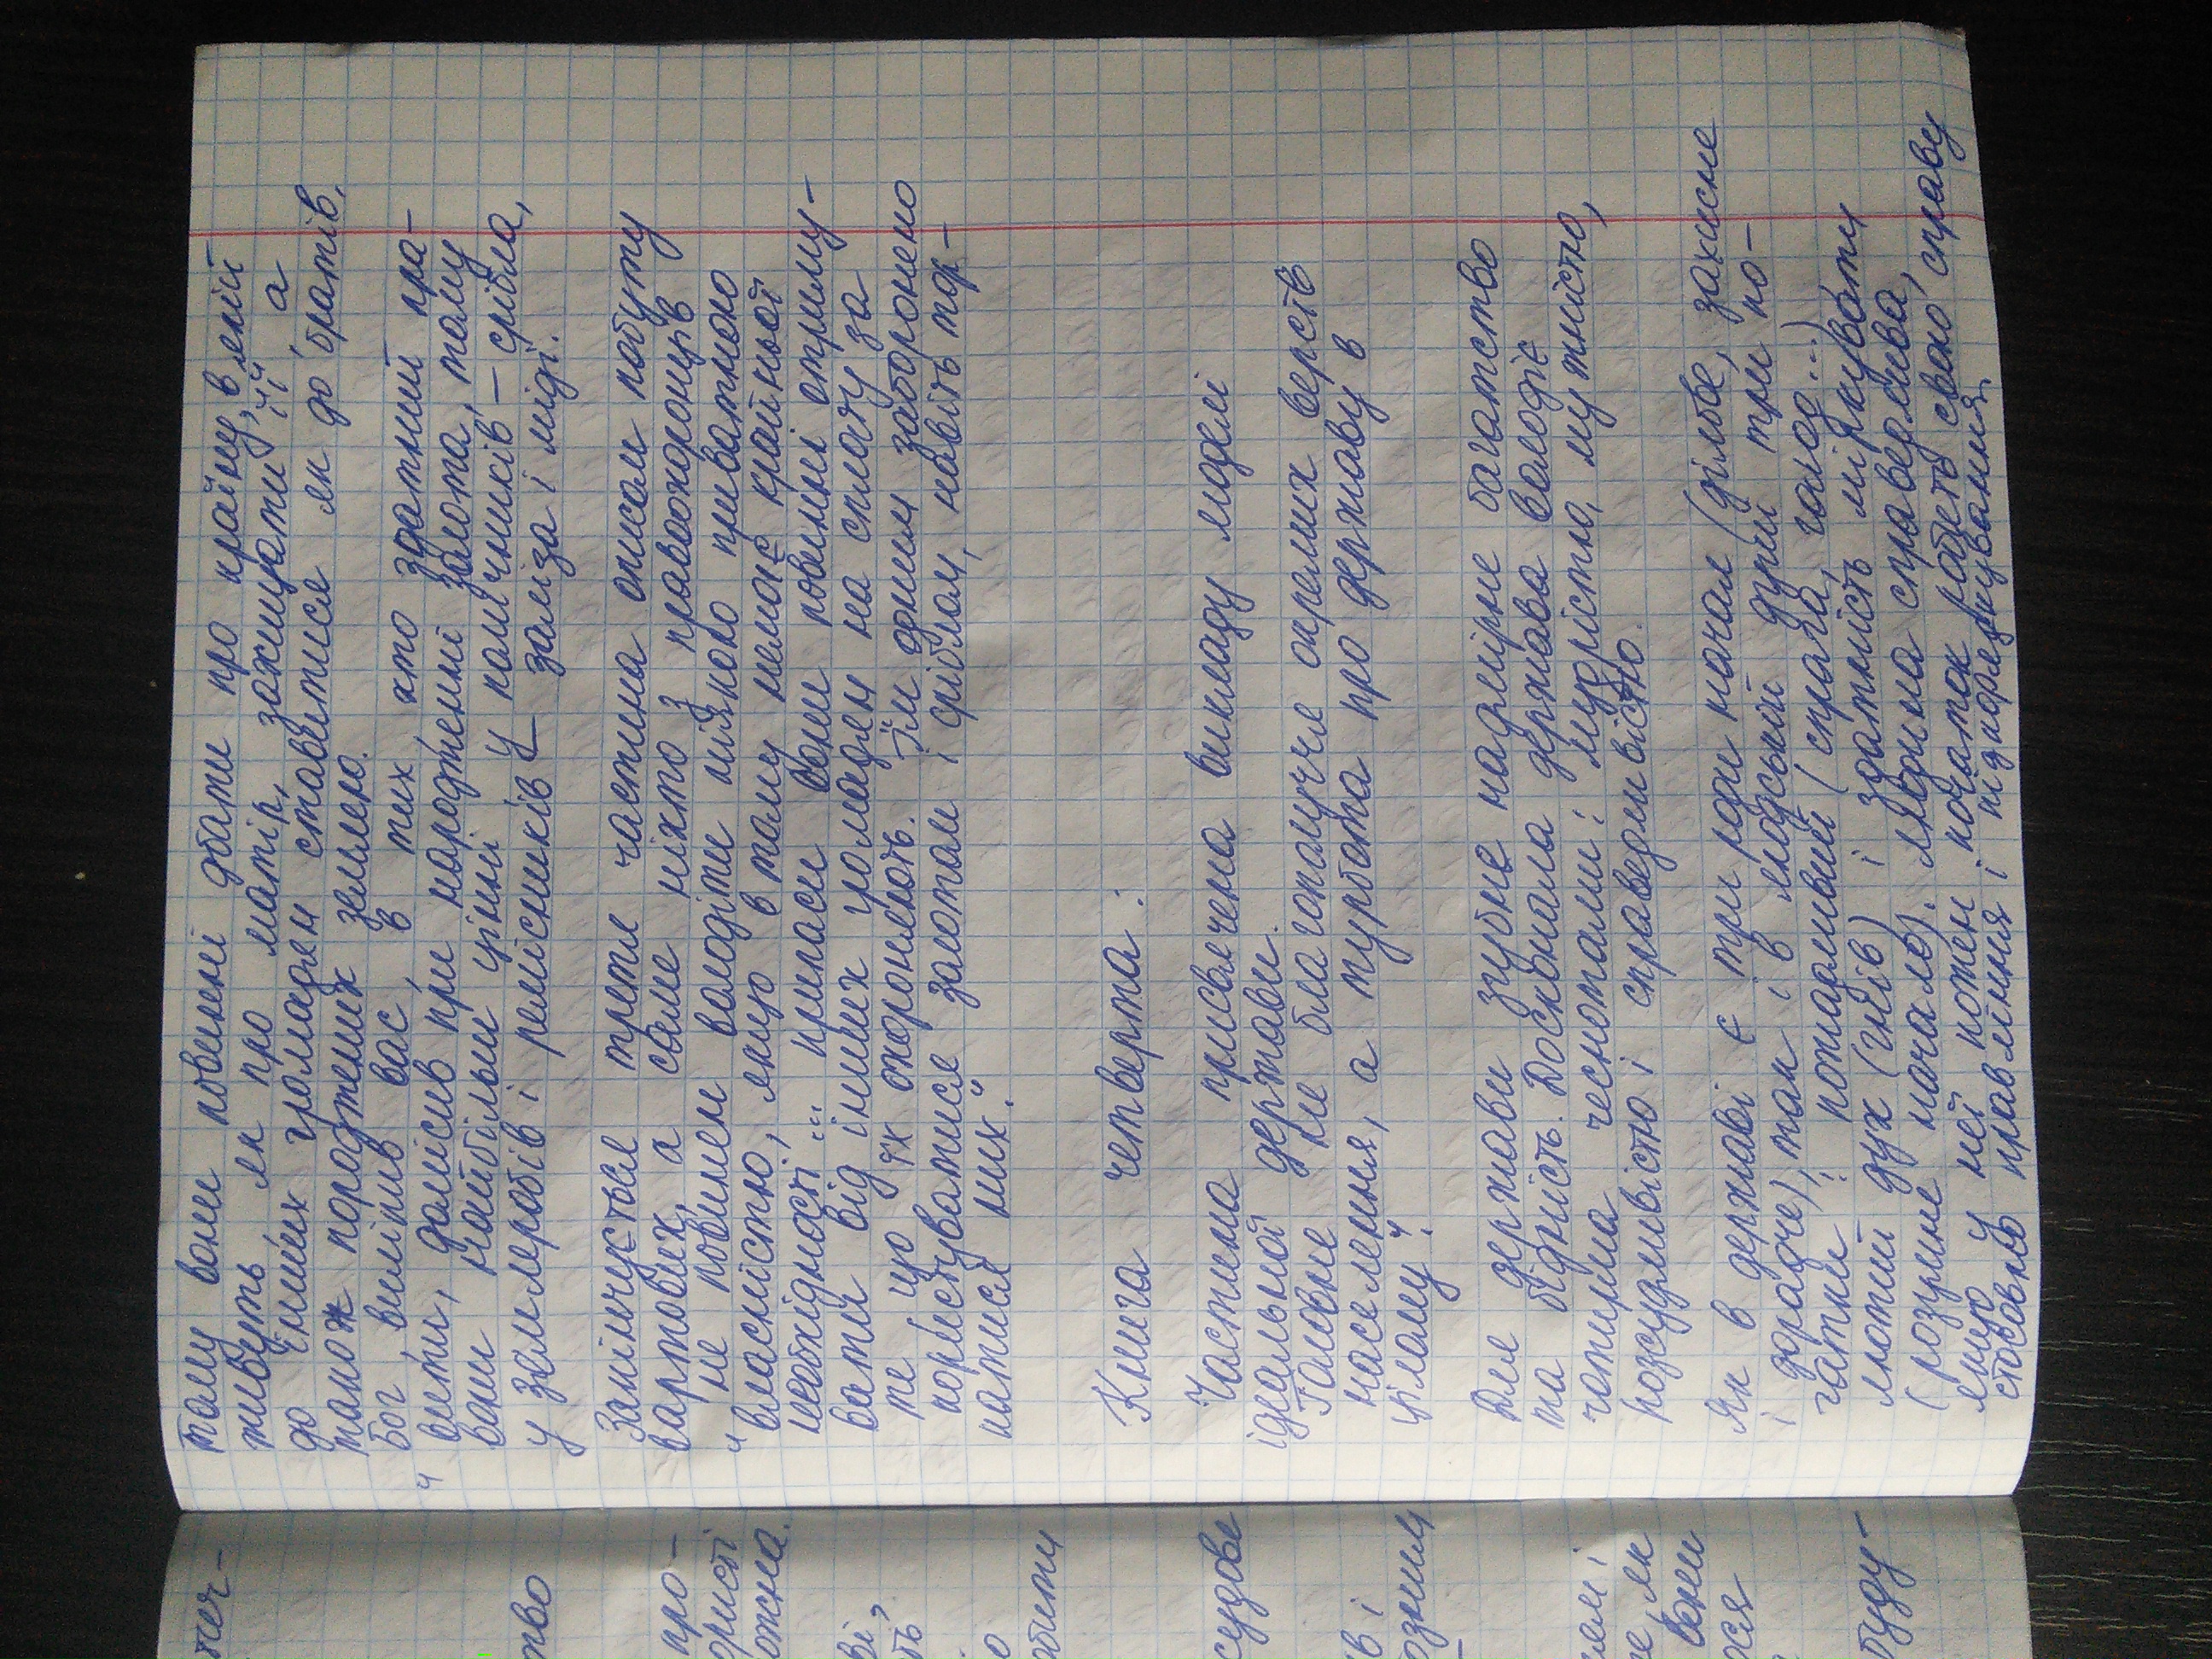 тому вони повинні дбати про країну, в якій
живуть як про матір, захищати її, а
до інших громадян ставитися як до братів,
також породжених землею.
бог виліпив вас, в тих хто здатний пра-
"вити, домісив при народженні золота, тому
вони найбільш цінні, у помічників – срібла,
у землеробів і ремісників – заліза і міді.
Закінчується третя частина описом побуту
вартових, а саме ніхто з правоохоронців
"не повинен володіти ніякою приватною
власністю, якщо в тому немає крайньої
необхідності ... припаси вони повинні отриму-
вати від інших громадян на сплату за
те що їх охороняють. Їм одним заборонено
користуватися золотом і сріблом, навіть тор-
катися них".
Книга четверта:
Частина присвячена викладу моделі
ідеальної держави.
"Головне не благополуччя окремих верств
населення, а турбота про державу в
цілому".
Для держави згубне надмірне багатство
та бідність. Досконала держава володіє
чотирма чеснотами: мудрістю, мужністю,
розсудливістю і справедливістю.
Як в державі є три роди начал (ділове, захисне
і дорадче), так і в людській душі три по-
чатки: вожделивий (спрага, голод...)
лютий дух (гнів) і здатність міркувати
(розумне начало). людина справедлива,
якщо у неї кожен початок робить свою справу
стосовно правління і підпорядкування
теч-
тво
про-
ористі
ожна.
ві,
ть
о
обити
судове
в і
озкиш
лем і
е як
вони
ося
буду-